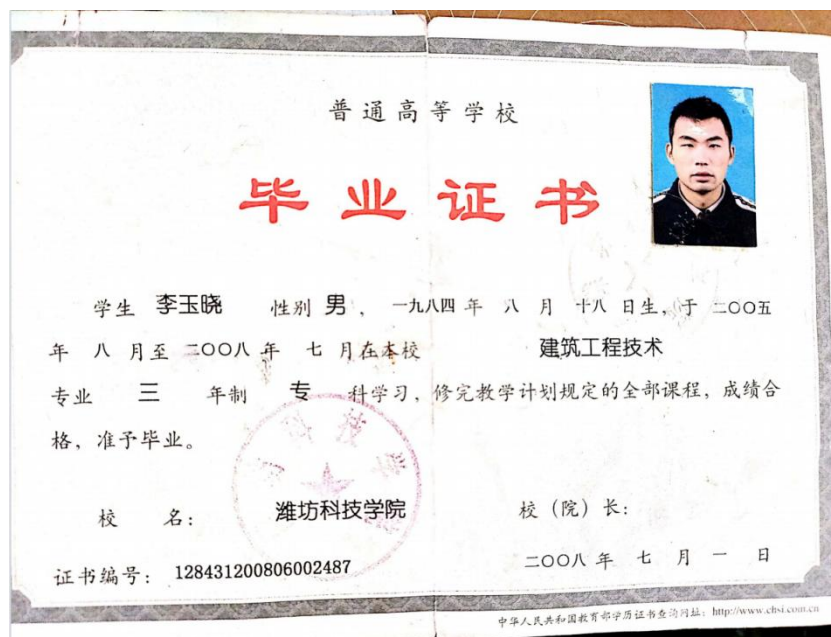 普通高等学校
毕业证书
学生 李玉晓 性别 男 ， 一九八四 年 八 月 十八 日生，于 二〇〇五
年 八 月至 二〇〇八 年 七 月在本校 建筑工程技术
专业 三 年制 专 科学习，修完教学计划规定的全部课程，成绩合
格，准予毕业。
校 名： 潍坊科技学院 校（院）长：
证书编号： 128431200806002487 二〇〇八 年 七 月 一 日
中华人民共和国教育部学历证书查询网址：http://www.chsi.com.cn
科技学